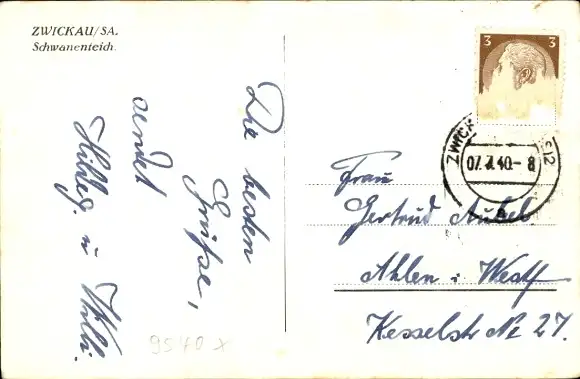 ZWICKAU/SA.
Schwanenteich.
Die besten
Grüsse,
sendet
Hildeg. u Willi.
3 3
ZWICK
07. 40.- 8
Frau
Gertrud
Ahlen i. Westf
Kesselstr № 27.
9540 x